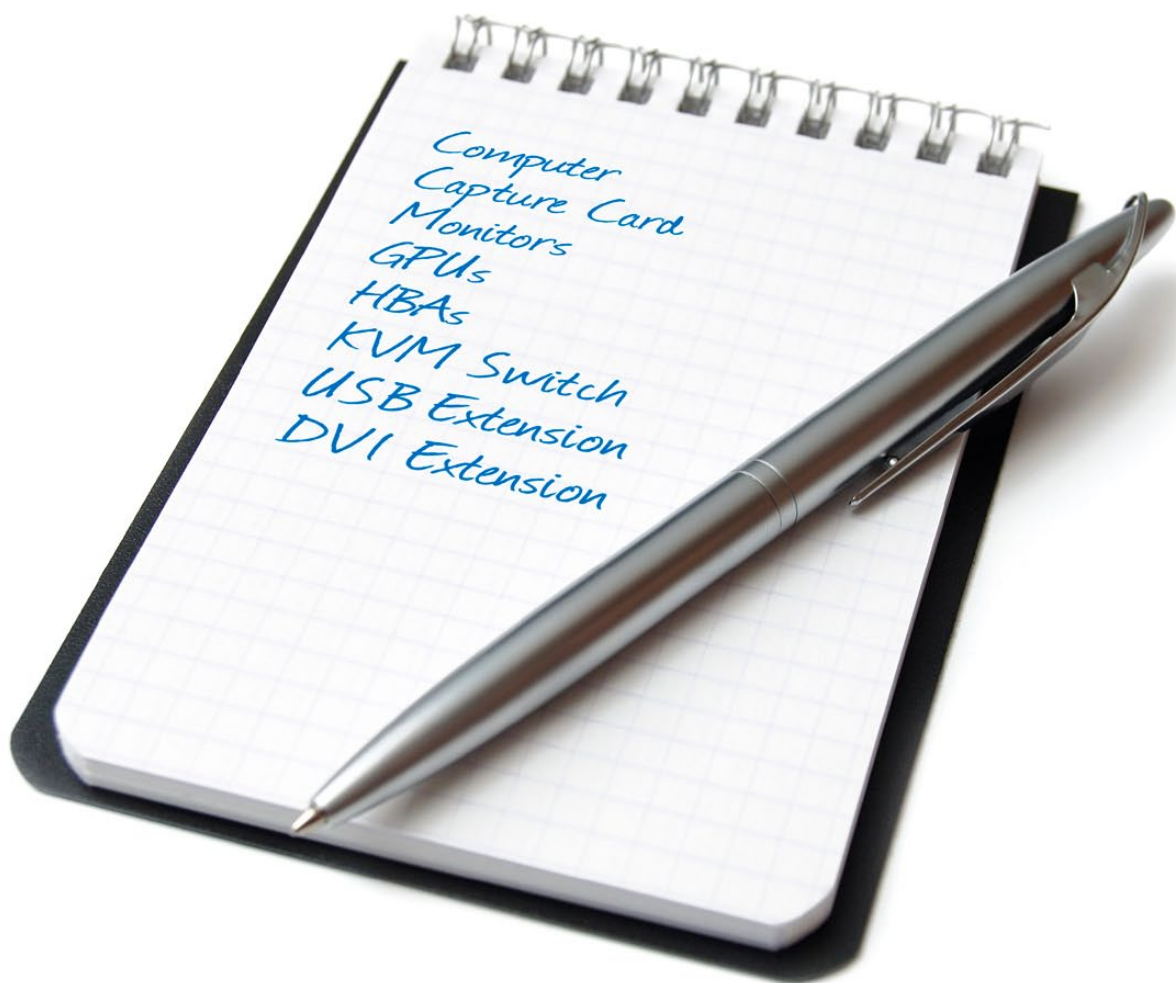 Computer
Capture Card
Monitors
GPUs
HBAs
KVM Switch
USB Extension
DVI Extension